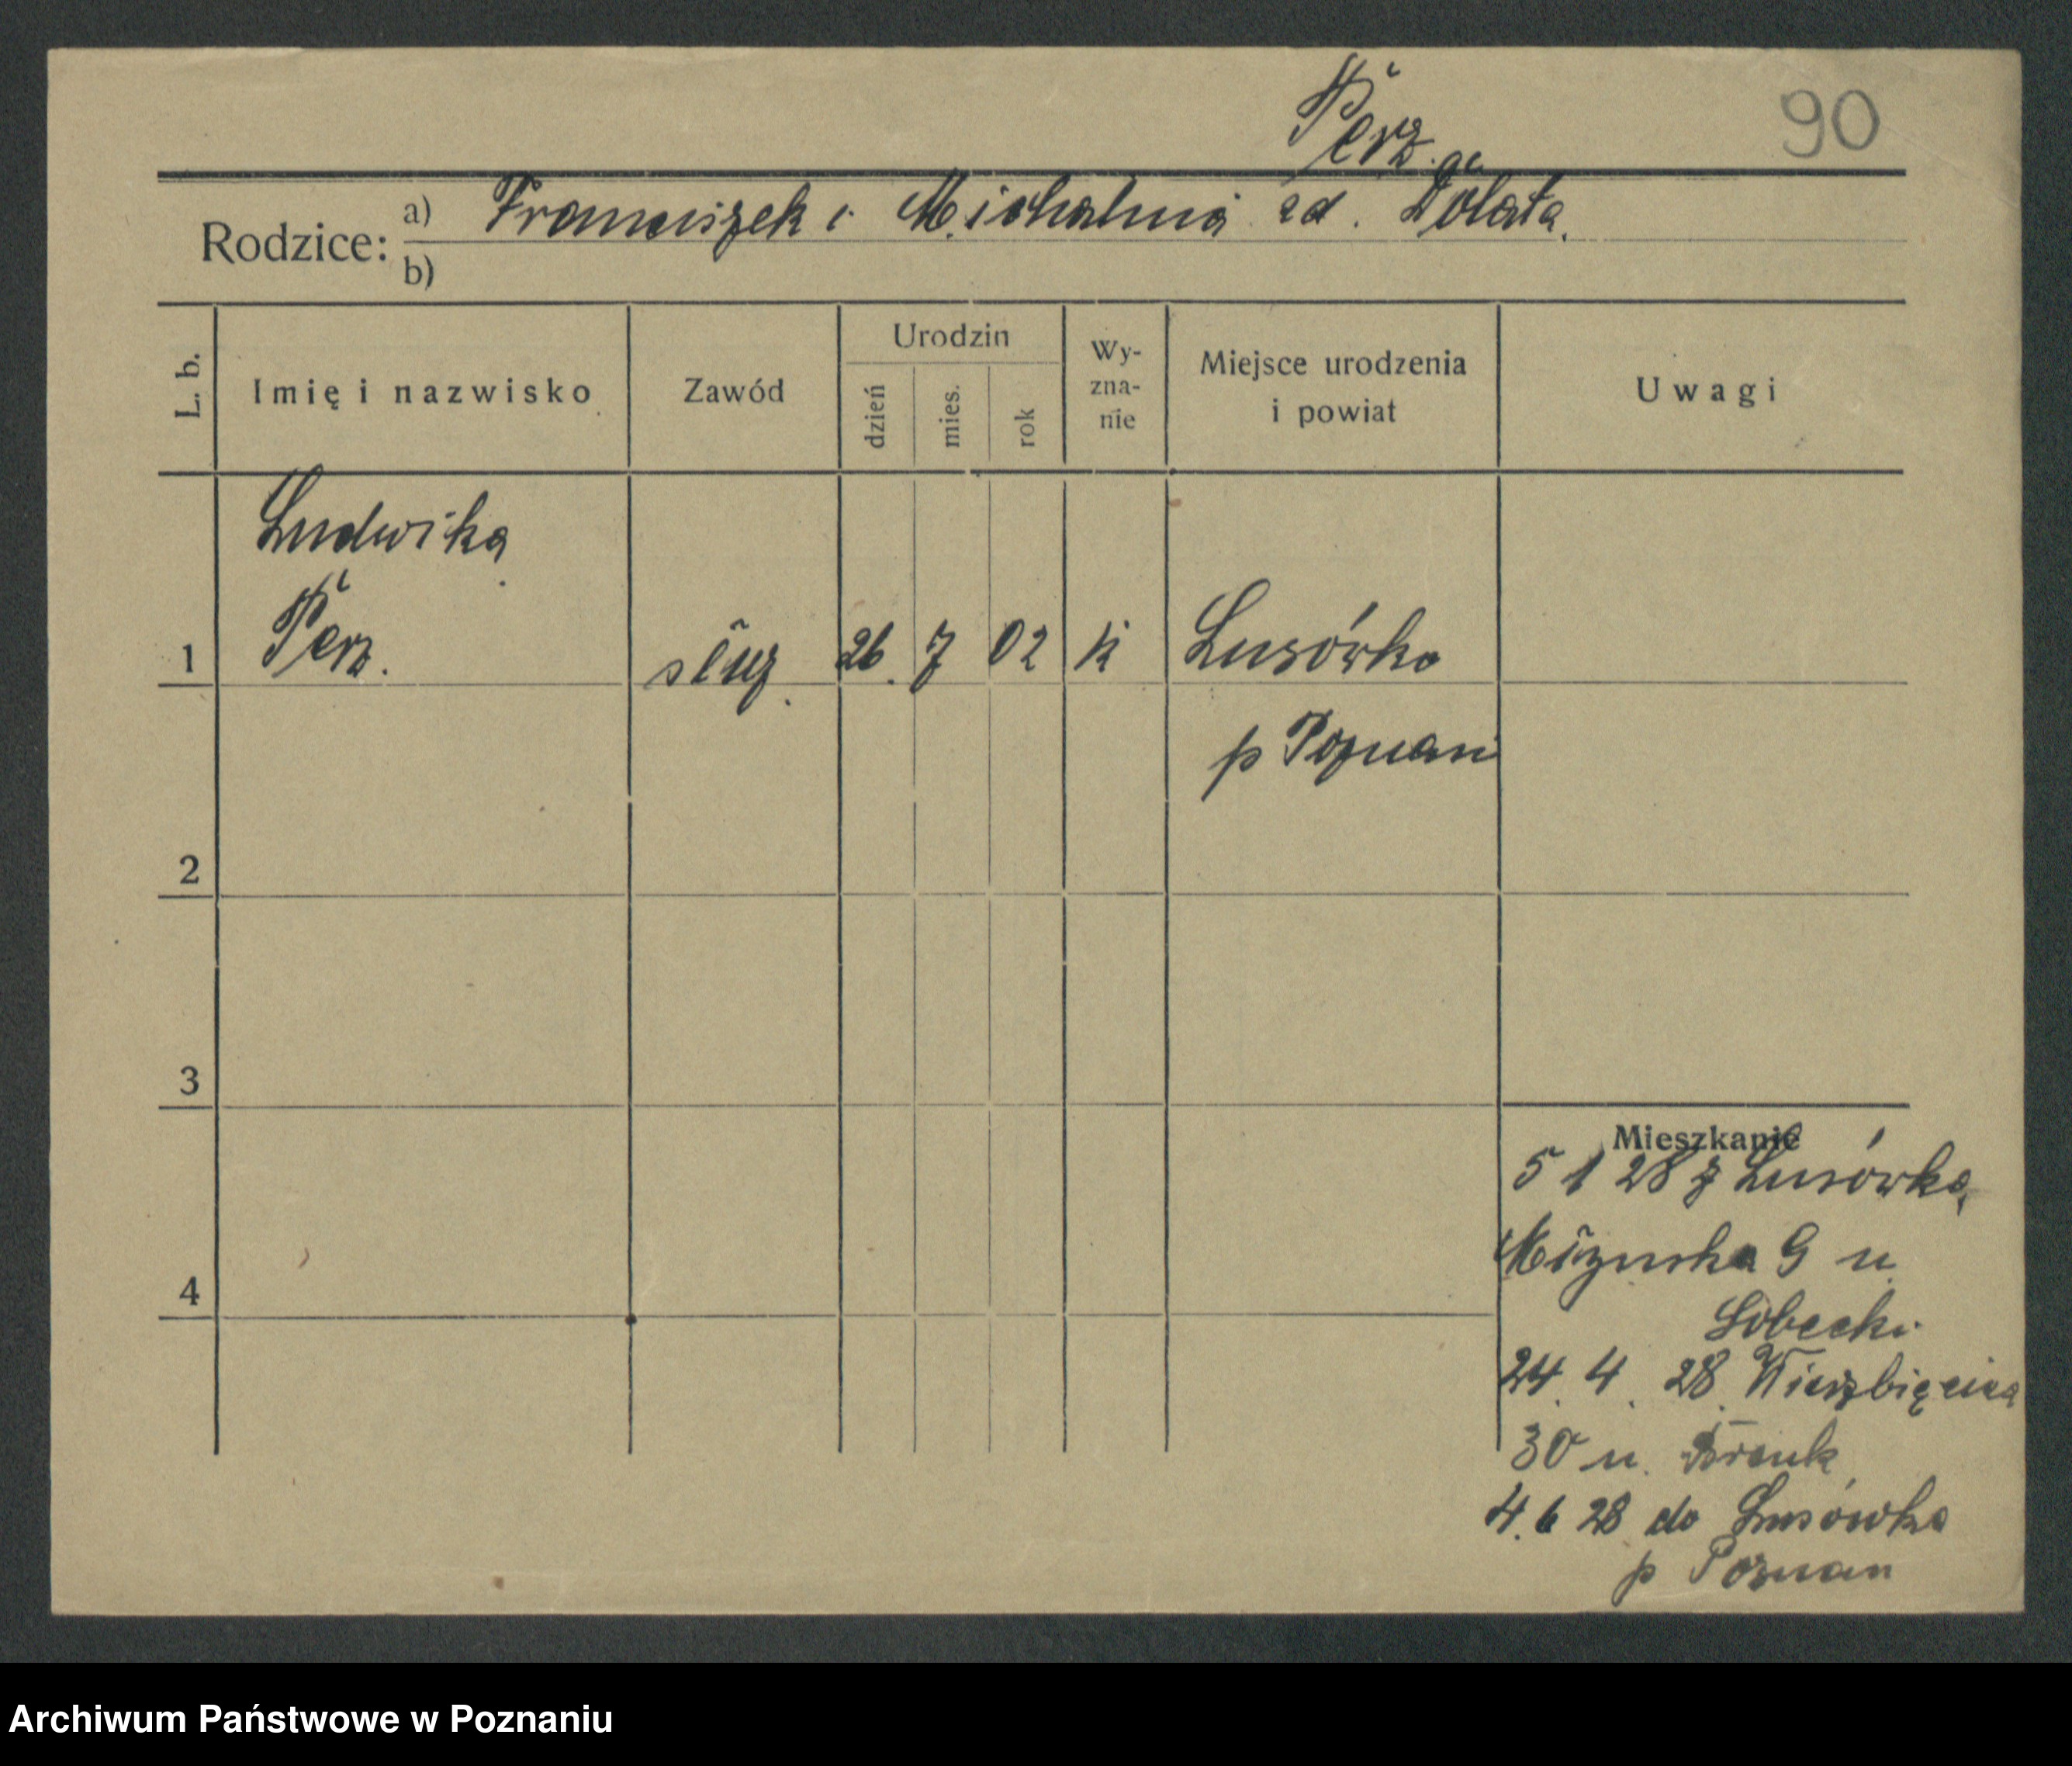 Perz.
90
Rodzice: a) Franciszek i Michalina zd. Dolata.
b)
L. b. Imię i nazwisko Zawód Urodzin dzień mies. rok Wy-zna-nie Miejsce urodzenia i powiat Uwagi
Ludwika
1 Perz. służ. 26. 7 02 k Lusówko
p Poznań
2
3
4
Mieszkanie
5 1 28 z Lusówka,
9 u
24. 4. 28. Wierzbięcice
30 u.
4. 6 28 do Lusówka
p Poznan
Archiwum Państwowe w Poznaniu